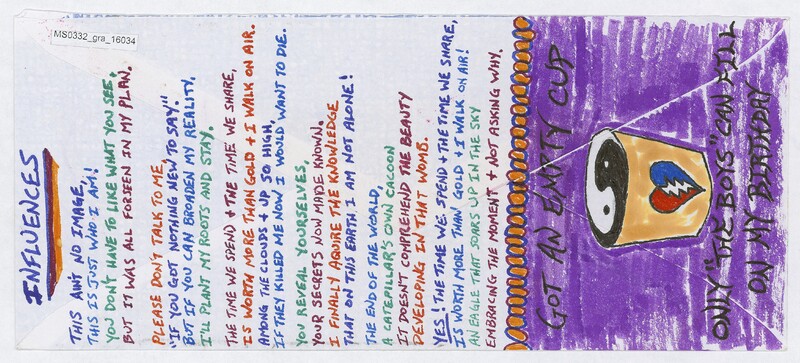 MS0332_gra_16034
INFLUENCES
THIS AIN'T NO IMAGE,
THIS IS JUST WHO I AM!
YOU DON'T HAVE TO LIKE WHAT YOU SEE,
BUT IT WAS ALL FORSEEN IN MY PLAN.
PLEASE DON'T TALK TO ME,
"IF YOU GOT NOTHING NEW TO SAY."
BUT IF YOU CAN BROADEN MY REALITY,
I'LL PLANT MY ROOTS AND STAY.
THE TIME WE SPEND + THE TIME WE SHARE,
IS WORTH MORE THAN GOLD + I WALK ON AIR.
AMONG THE CLOUDS + UP SO HIGH,
IF THEY KILLED ME NOW I WOULD WANT TO DIE.
YOU REVEAL YOURSELVES,
YOUR SECRETS NOW MADE KNOWN.
I FINALLY AQUIRE THE KNOWLEDGE
THAT ON THIS EARTH I AM NOT ALONE!
THE END OF THE WORLD,
A CATEPILLAR'S OWN CACOON
IT DOESN'T COMPREHEND THE BEAUTY
DEVELOPING IN THAT WOMB.
YES! THE TIME WE SPEND + THE TIME WE SHARE,
IS WORTH MORE THAN GOLD + I WALK ON AIR!
AN EAGLE THAT SOARS UP IN THE SKY
EMBRACING THE MOMENT + NOT ASKING WHY.
GOT AN EMPTY CUP
ONLY "THE BOYS" CAN FILL
ON MY BIRTHDAY